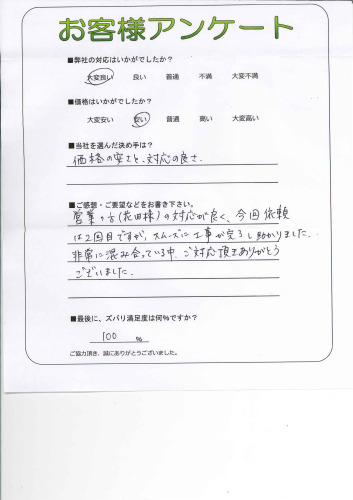 お客様アンケート
■弊社の対応はいかがでしたか？
大変良い 良い 普通 不満 大変不満
■価格はいかがでしたか？
大変安い 安い 普通 高い 大変高い
■当社を選んだ決め手は？
価格の安さと、対応の良さ
■ご感想・ご要望などをお書き下さい。
営業の方(花田様)の対応が良く、今回依頼
は2回目ですが、スムーズに工事が完了し助かりました。
非常に混み合っている中、ご対応頂きありがとう
ございました。
■最後に、ズバリ満足度は何%ですか？
100 %
ご協力頂き、誠にありがとうございました。